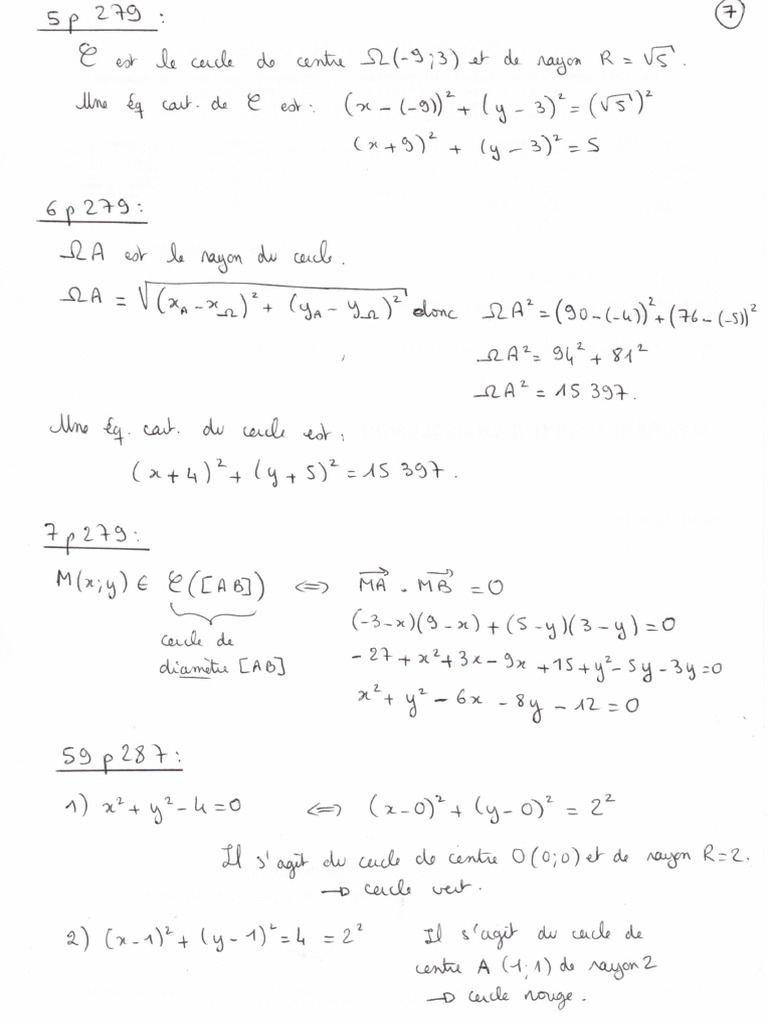 7
5 p 279 :
𝒞 est le cercle de centre Ω(-9;3) et de rayon R = √5.
Une éq cart. de 𝒞 est : (x-(-9))² + (y-3)² = (√5)²
(x+9)² + (y-3)² = 5
6 p 279 :
ΩA est le rayon du cercle.
ΩA = √((x_A - x_Ω)² + (y_A - y_Ω)²) donc ΩA² = (90-(-4))² + (76-(-5))²
ΩA² = 94² + 81²
ΩA² = 15 397.
Une éq. cart. du cercle est :
(x+4)² + (y+5)² = 15 397.
7 p 279 :
M(x;y) ∈ 𝒞([AB]) ⇔ MA⃗ . MB⃗ = 0
cercle de
diamètre [AB]
(-3-x)(9-x) + (5-y)(3-y) = 0
-27 + x² + 3x - 9x + 15 + y² - 5y - 3y = 0
x² + y² - 6x - 8y - 12 = 0
59 p 287 :
1) x² + y² - 4 = 0 ⇔ (x-0)² + (y-0)² = 2²
Il s'agit du cercle de centre O(0;0) et de rayon R=2.
→ cercle vert.
2) (x-1)² + (y-1)² = 4 = 2² Il s'agit du cercle de
centre A (1;1) de rayon 2
→ cercle rouge.